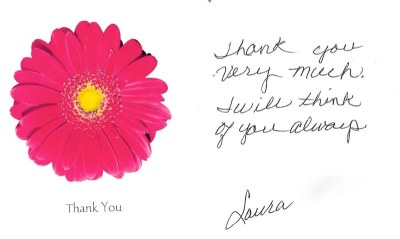 Thank You
Thank you
very much.
I will think
of you always
Laura